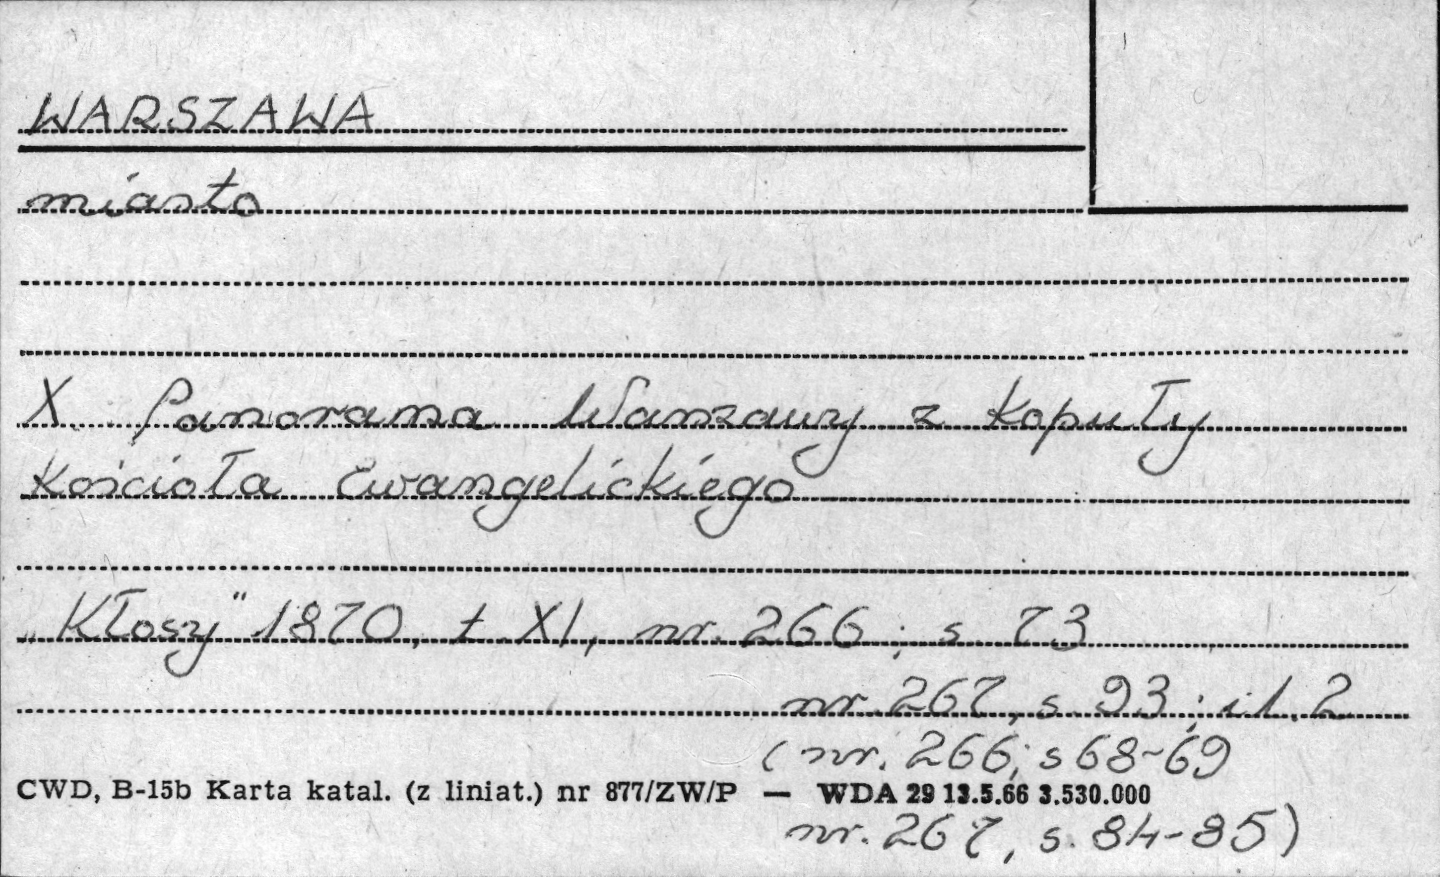 WARSZAWA
miasto
X. Panorama Warszawy z Kopuły
Kościoła Ewangelickiego
„Kłosy" 1870, t. XI, nr. 266; s. 73
nr. 267, s. 93; il. 2
(nr. 266; s 68-69
CWD, B-15b Karta katal. (z liniat.) nr 877/ZW/P — WDA 29 13.5.66 3.530.000
nr. 267, s. 84-85)